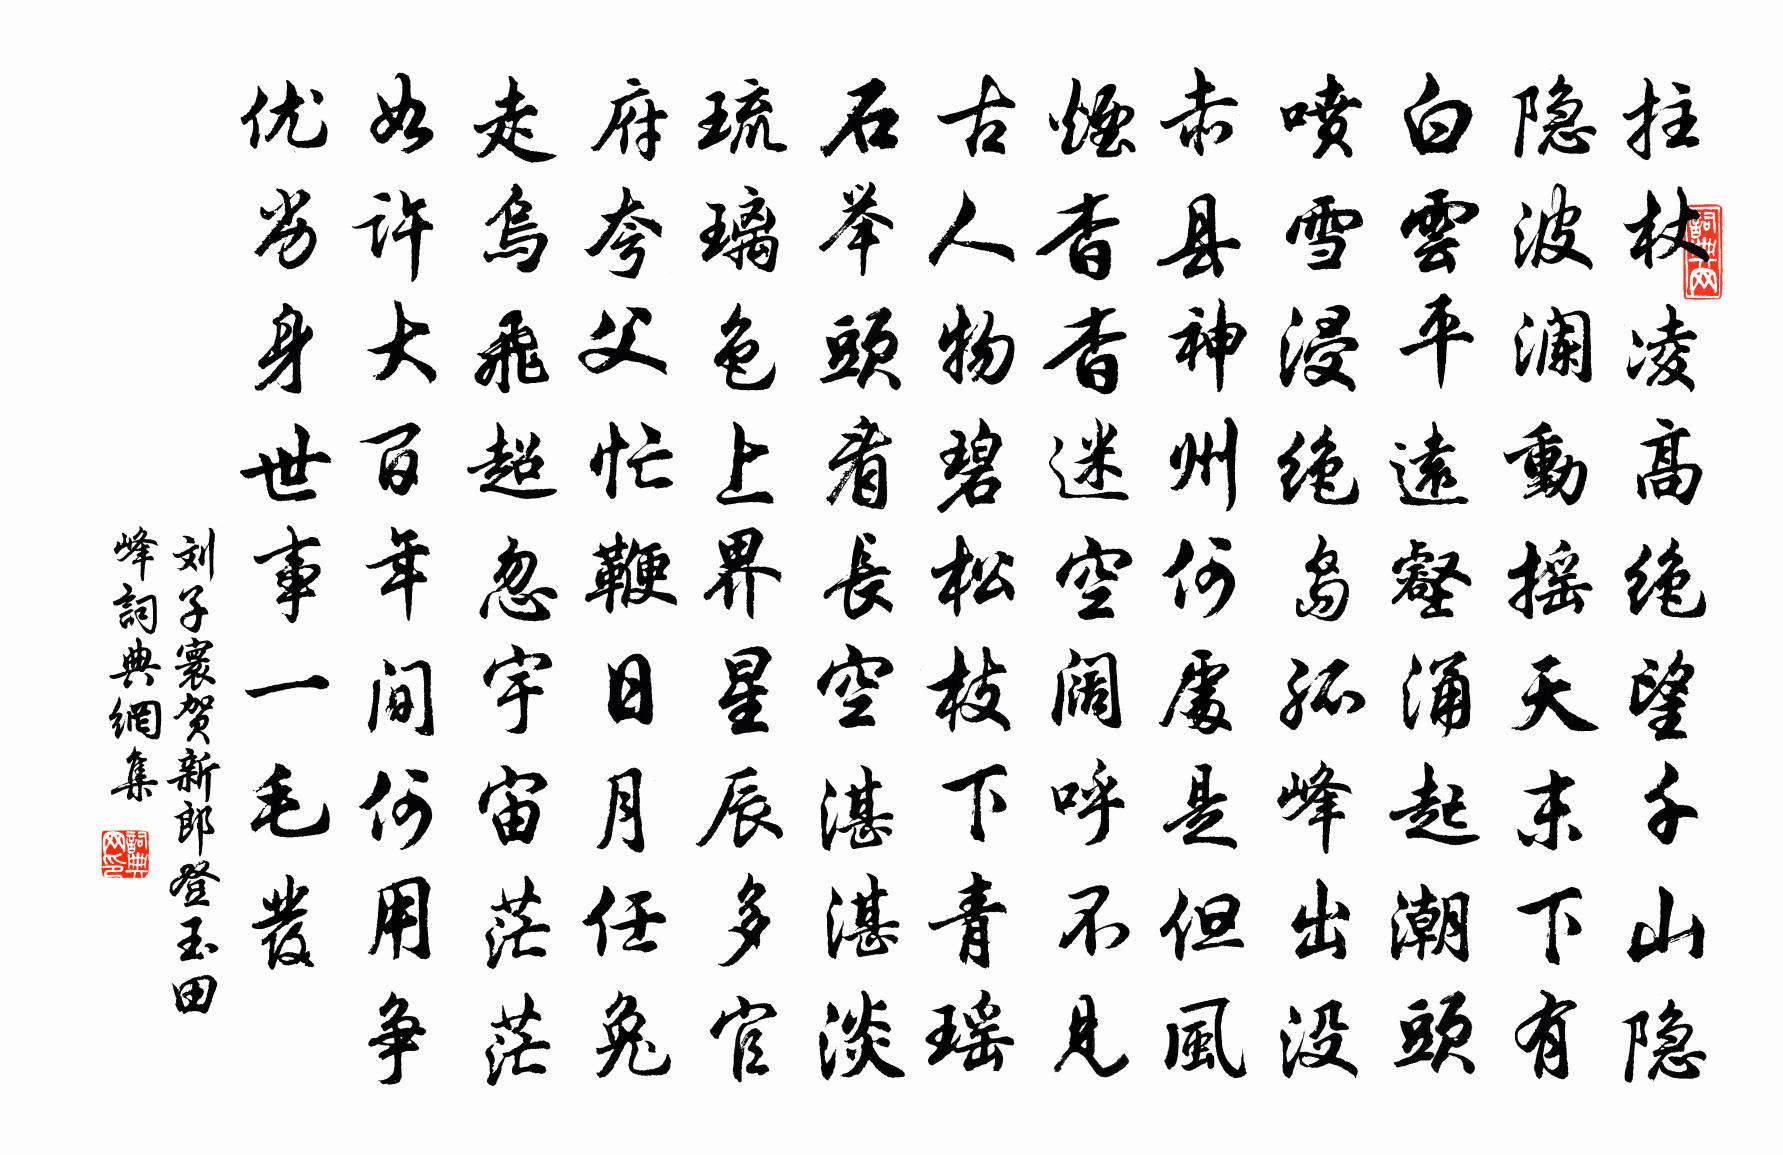 詞典网
拄杖凌高绝望千山隐
隐波澜動摇天末下有
白雲平遠壑涌起潮頭
喷雪浸绝岛孤峰出没
赤县神州何處是但風
煙杳杳迷空阔呼不见
古人物碧松枝下青瑶
石举頭看長空湛湛淡
琉璃色上界星辰多官
府夸父忙鞭日月任兔
走烏飛超忽宇宙茫茫
如许大百年间何用争
优劣身世事一毛發
刘子寰贺新郎登玉田
峰詞典網集
詞典网印